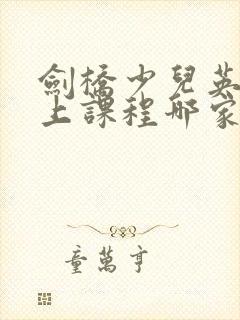 劍橋少兒英
上課程哪家
童萬亨